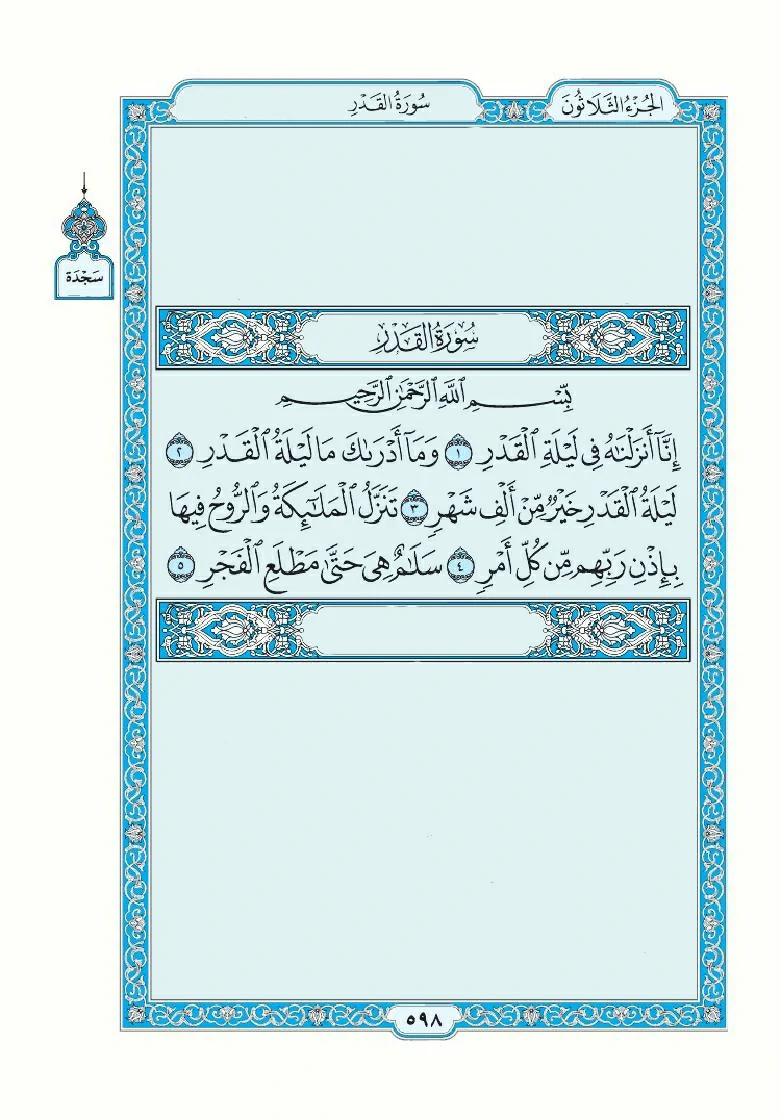 الجُزْءُ الثَّلَاثُونَ
سُورَةُ القَدْرِ
سَجْدَة
سُورَةُ القَدْرِ
بِسْمِ ٱللَّهِ ٱلرَّحْمَٰنِ ٱلرَّحِيمِ
إِنَّآ أَنزَلْنَٰهُ فِى لَيْلَةِ ٱلْقَدْرِ ١ وَمَآ أَدْرَىٰكَ مَا لَيْلَةُ ٱلْقَدْرِ ٢
لَيْلَةُ ٱلْقَدْرِ خَيْرٌ مِّنْ أَلْفِ شَهْرٍ ٣ تَنَزَّلُ ٱلْمَلَٰٓئِكَةُ وَٱلرُّوحُ فِيهَا
بِإِذْنِ رَبِّهِم مِّن كُلِّ أَمْرٍ ٤ سَلَٰمٌ هِىَ حَتَّىٰ مَطْلَعِ ٱلْفَجْرِ ٥
٥٩٨